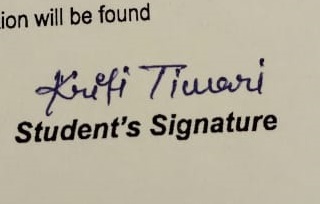 ion will be found
Kriti Tiwari
Student's Signature